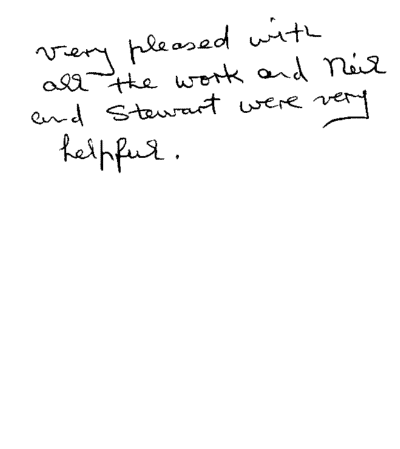 very pleased with
all the work and Neil
and Stewart were very
helpful.